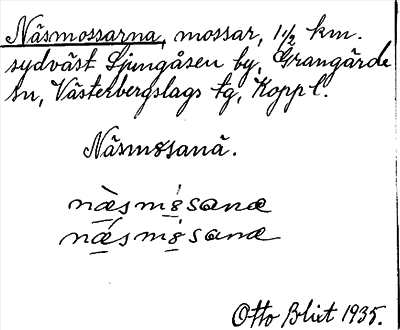 Näsmossarna, mossar, 1 1/2 km.
sydväst Ljungåsen by, Grangärde
sn, Västerbergslags tg, Koppl.
Näsmosanä.
næ̀smósanæ
næ̀smósanæ
Otto Blixt 1935.